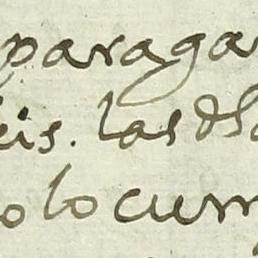 paraga
eis. las dh
o lo cum